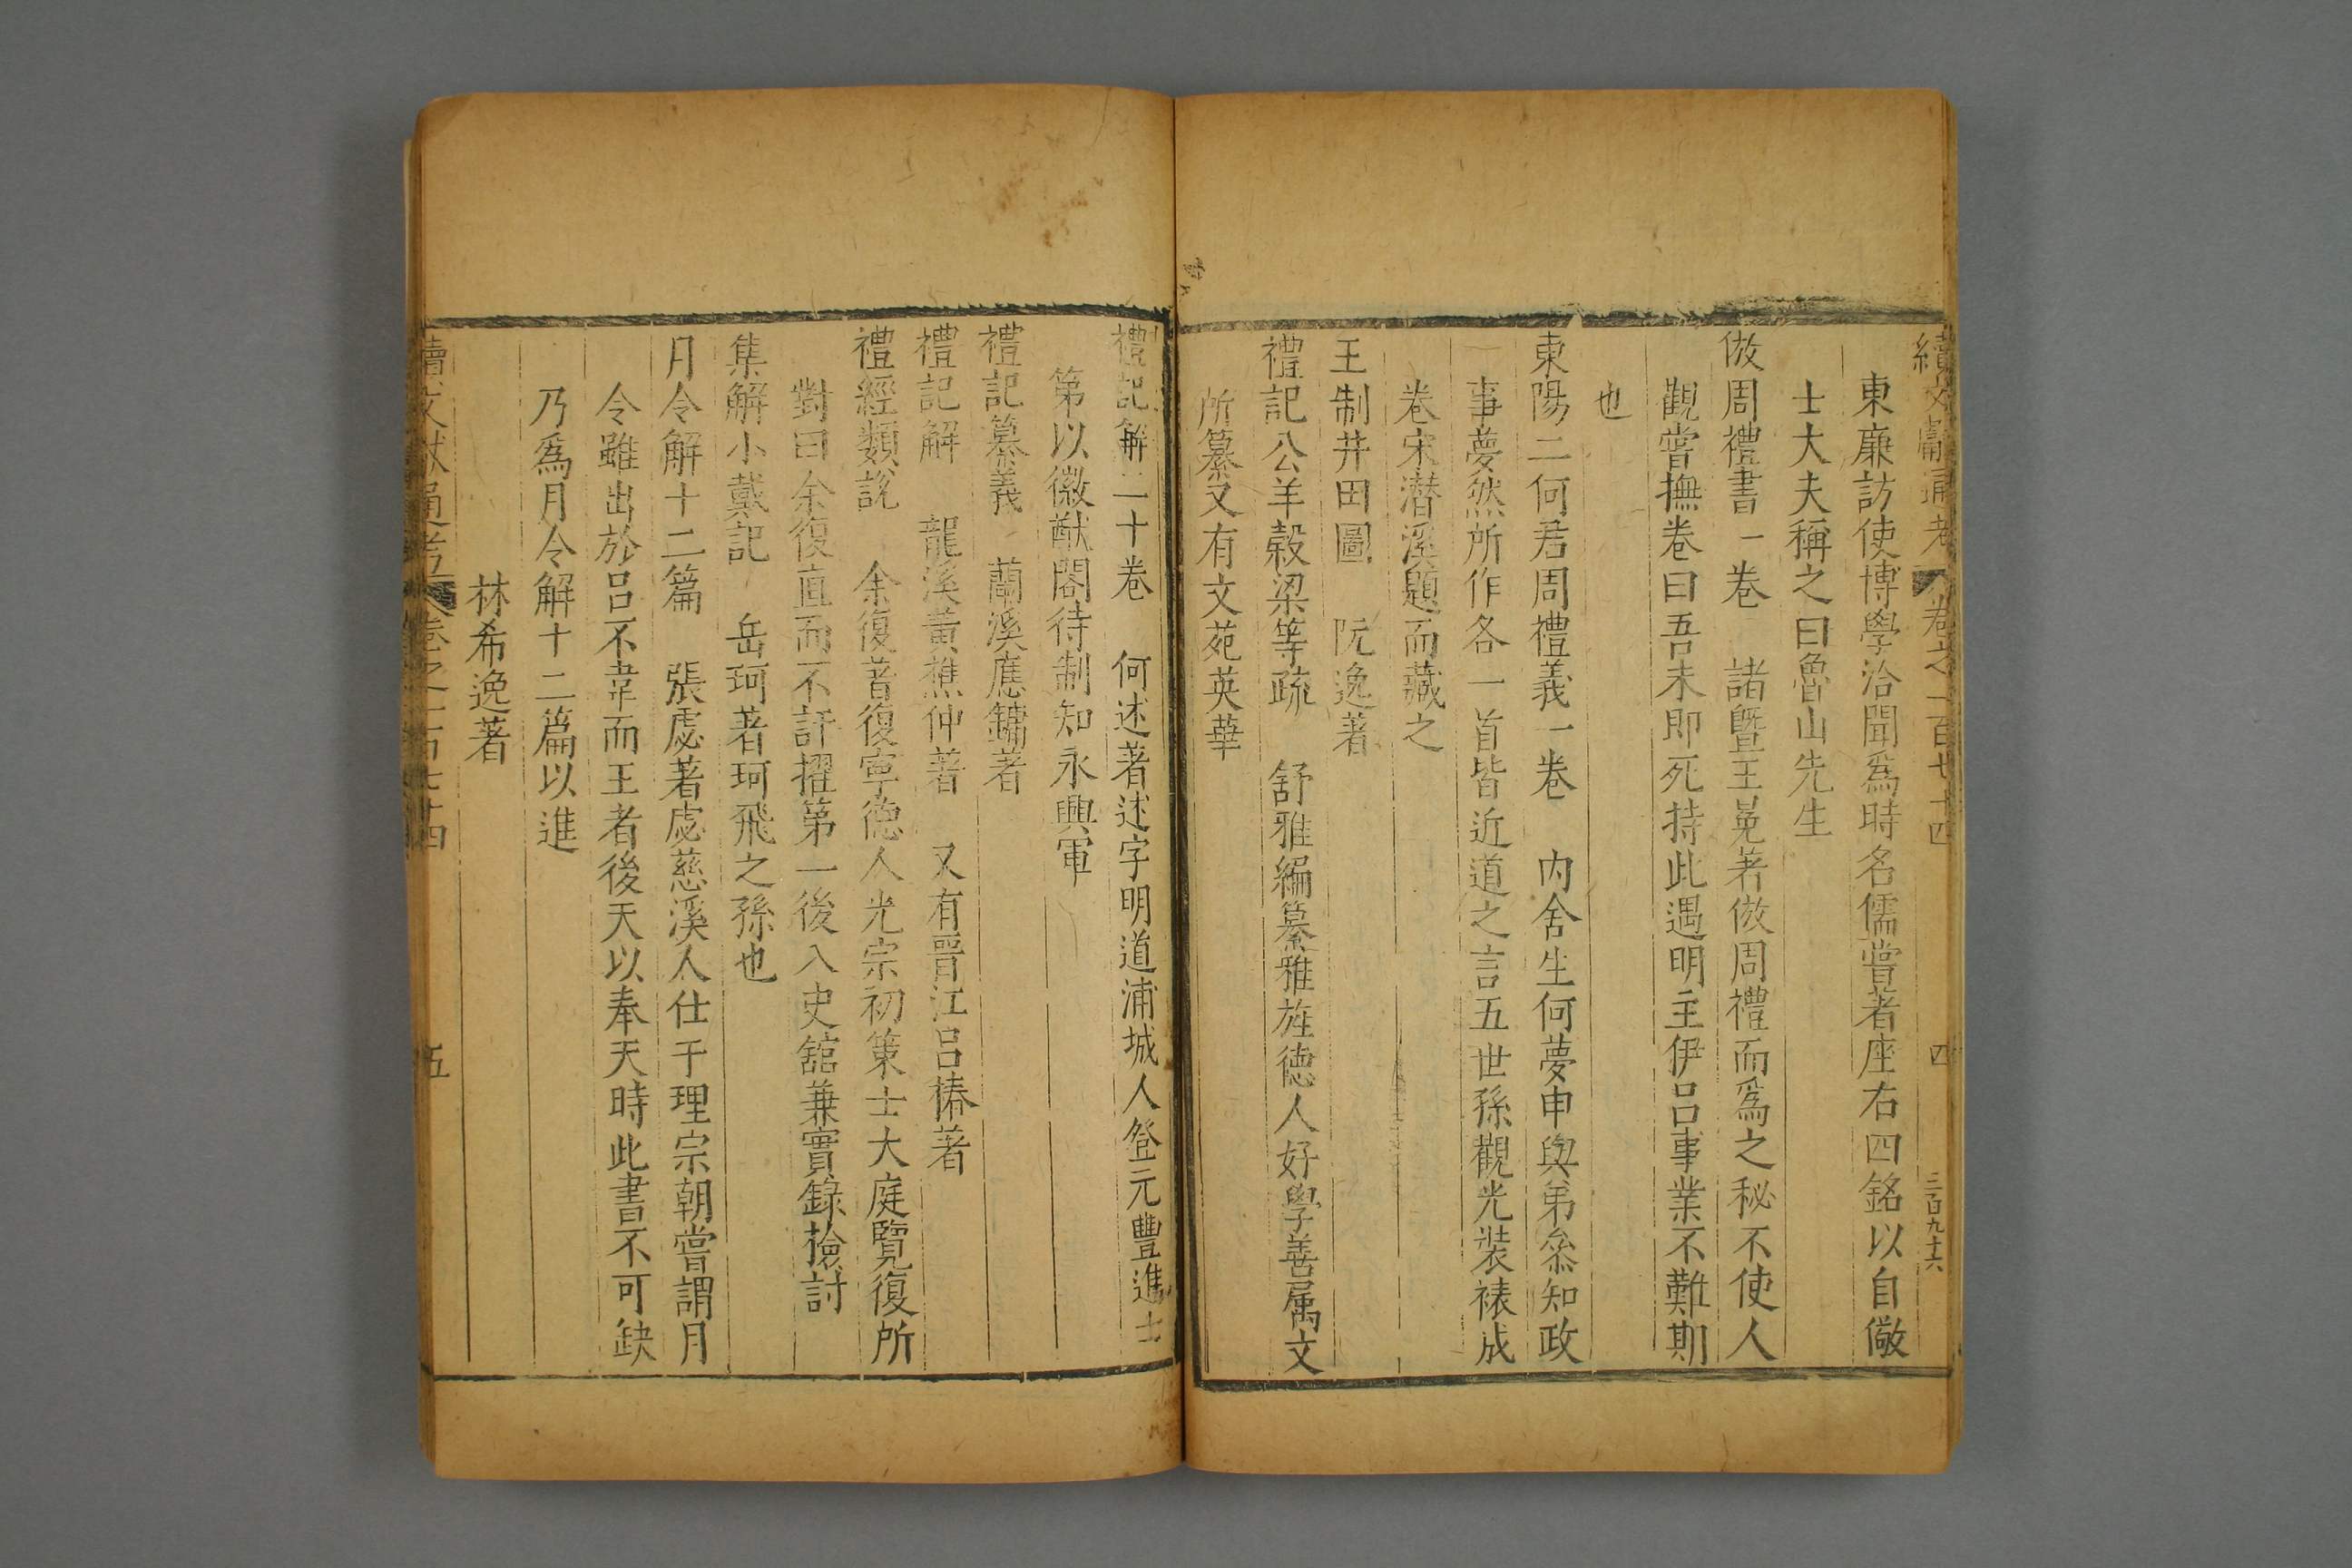 續文獻通考 卷之一百七十四 四 三百九十六
東廉訪使博學洽聞爲時名儒嘗著座右四銘以自儆
士大夫稱之曰魯山先生
倣周禮書一卷 諸暨王冕著倣周禮而爲之秘不使人
觀嘗撫卷曰吾未即死持此遇明主伊吕事業不難期
也
東陽二何君周禮義一卷 内舍生何夢申與弟叅知政
事夢然所作各一首皆近道之言五世孫觀光裝裱成
卷宋潜溪題而藏之
王制井田圖 阮逸著
禮記公羊穀梁等疏 舒雅編纂雅旌德人好學善属文
所纂又有文苑英華
禮記解二十卷 何述著述字明道浦城人登元豐進士
第以徽猷閣待制知永興軍
禮記纂義 蘭溪應鏞著
禮記解 龍溪黃樵仲著 又有晋江吕椿著
禮經類說 余復著復寧德人光宗初策士大庭覽復所
對曰余復直而不訐擢第一後入史舘兼實錄檢討
集解小戴記 岳珂著珂飛之孫也
月令解十二篇 張虙著虙慈溪人仕于理宗朝嘗謂月
令雖出於吕不韋而王者後天以奉天時此書不可缺
乃爲月令解十二篇以進
林希逸著
續文獻通考 卷之一百七十四 五